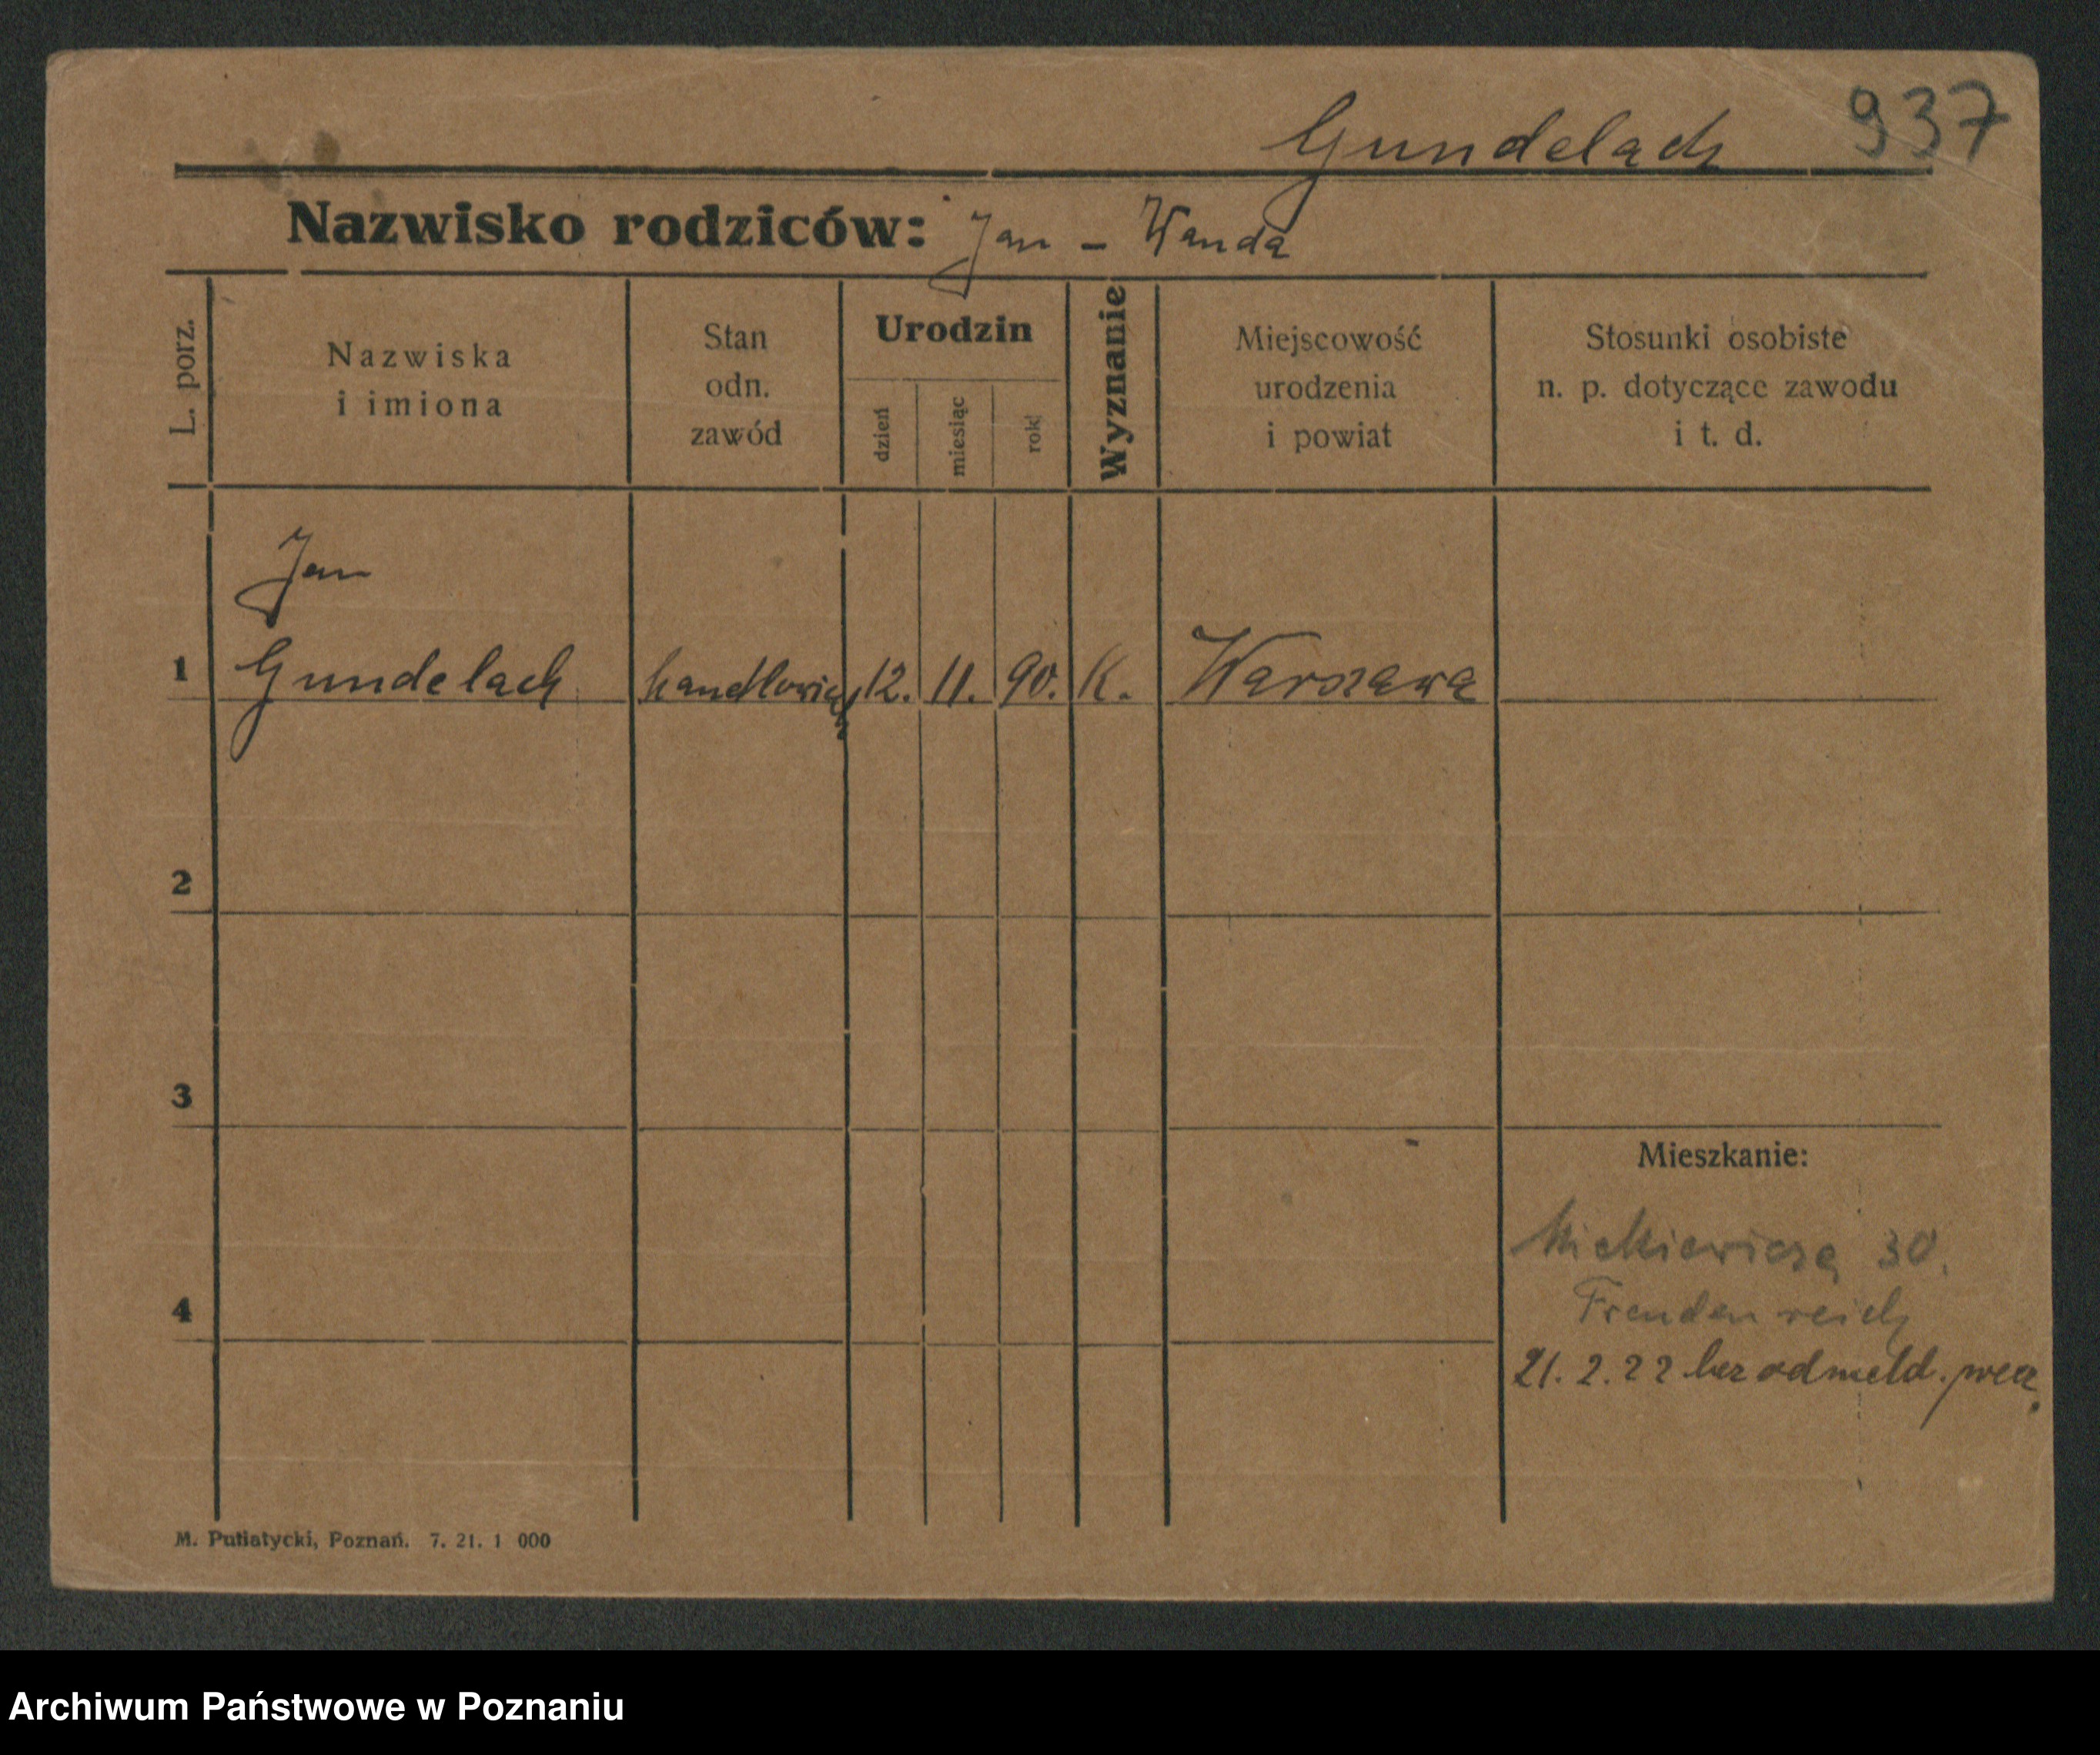 Gundelach 937
Nazwisko rodziców: Jan - Wanda
L. porz.
Nazwiska
i imiona
Stan
odn.
zawód
Urodzin
dzień
miesiąc
rok
Wyznanie
Miejscowość
urodzenia
i powiat
Stosunki osobiste
n. p. dotyczące zawodu
i t. d.
Jan
1 Gundelach handlowiec 12. 11. 90. K. Warszawa
2
3
Mieszkanie:
Mickiewicza 30.
4
Freudenreich
21. 2. 22 bez odmeld.
M. Putiatycki, Poznań. 7. 21. 1 000
Archiwum Państwowe w Poznaniu